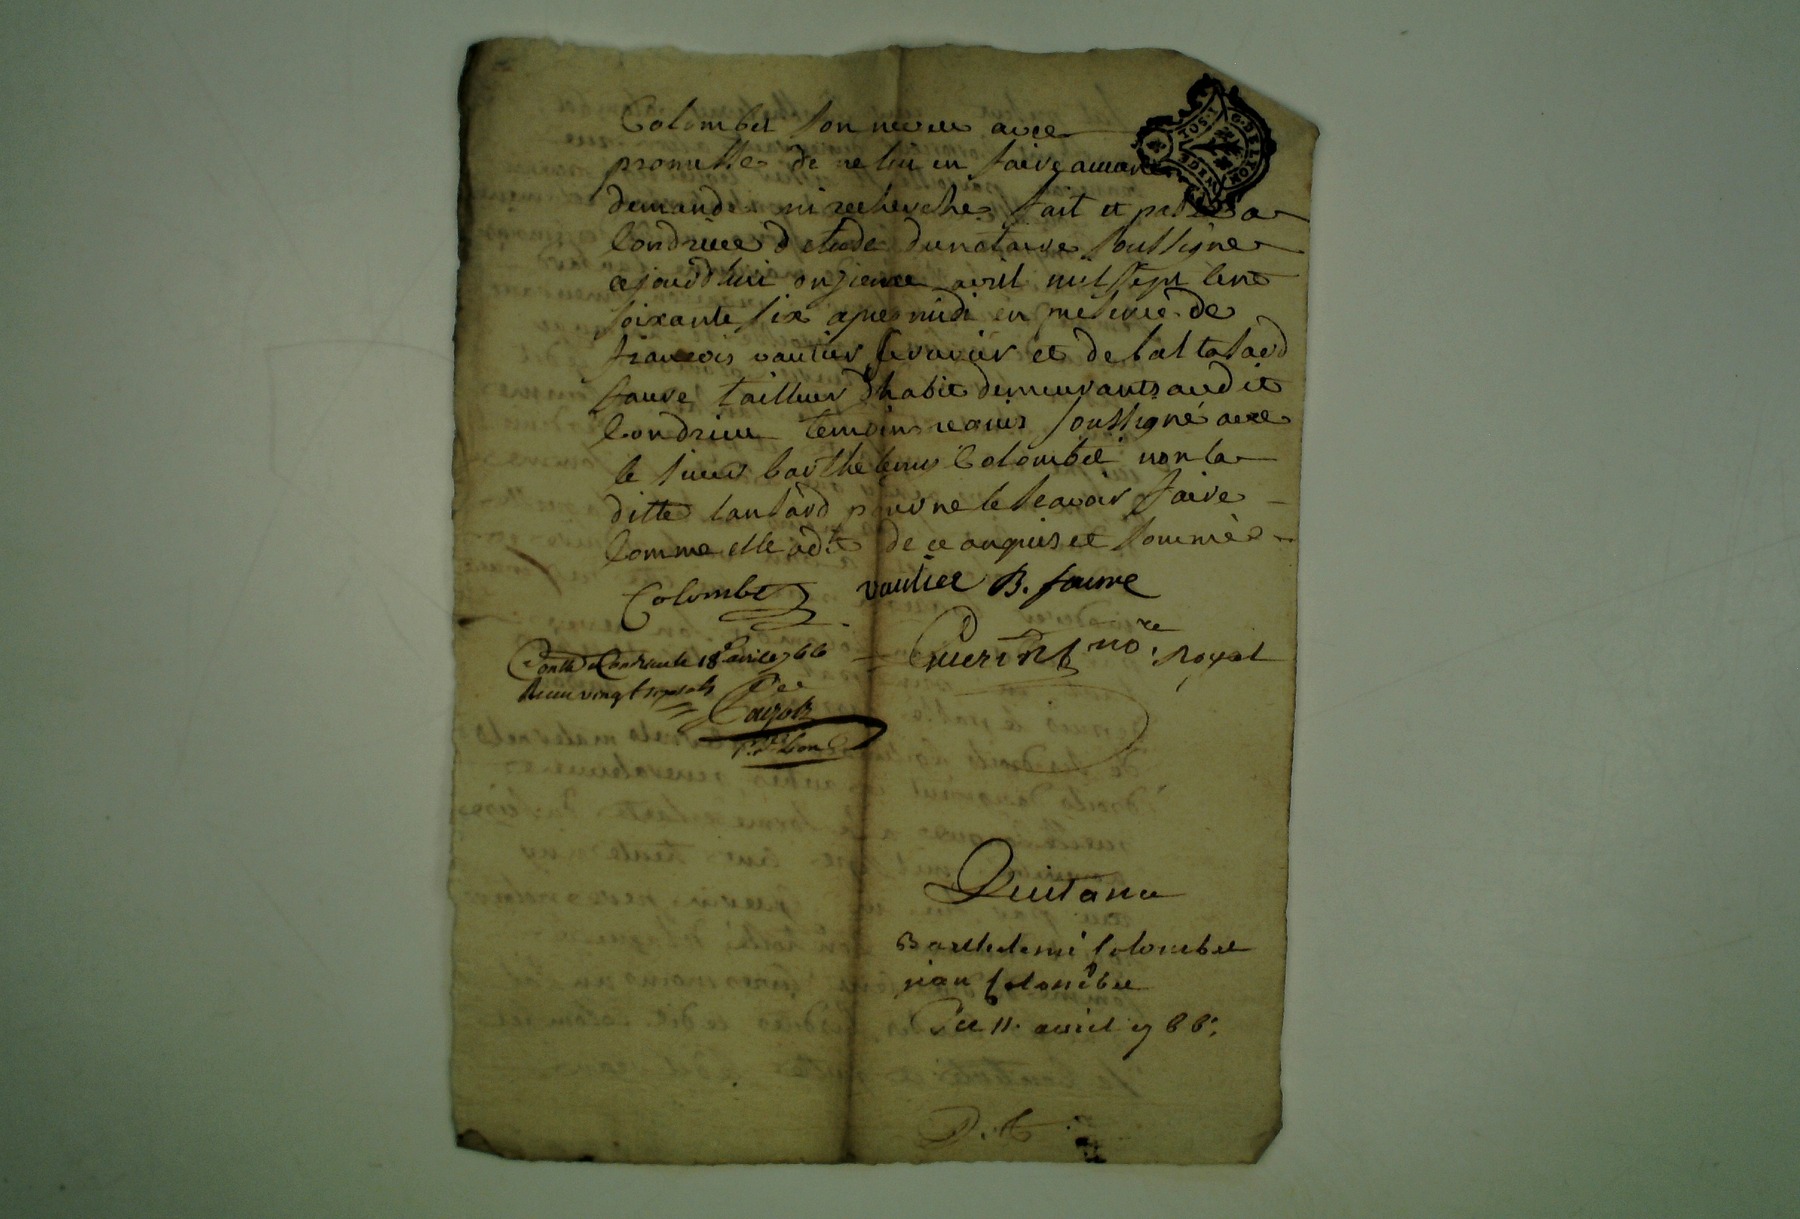 Colombet son neveu avec
promesse de ne lui en faire aucune
demande ni recherche fait et passé a
Condrieu d etude du notaire soussigné
ajourdhui onzieme avril mil sept cent
soixante six apres midi en presence de
françois vautier et de
faure tailleur dhabit demeurants audit
Condrieu temoins requis soussigné avec
le sieur barthelemi Colombet non la
ditte pour ne le scavoir faire
comme elle a dit de ce enquis et sommée
Colombet vautier B. faure
Guerin no.re Royal
Conllé a Condrieu le 18e avril 1766
Receu vingt sols
Quitance
Barthelemi Colombet
jean Colombet
Du 11. avril 766.
G. DE LYON